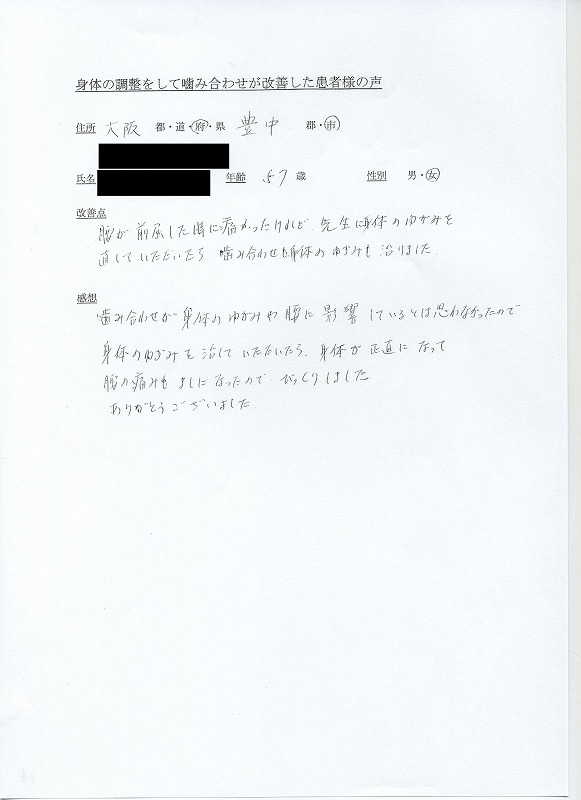 身体の調整をして噛み合わせが改善した患者様の声
住所 大阪 都・道・府・県 豊中 郡・市
氏名 年齢 57 歳 性別 男・女
改善点
腰が前屈した時に痛かったけれど、先生に身体のゆがみを
直していただいたら 噛み合わせも身体のゆがみも 治りました。
感想
噛み合わせが身体のゆがみや腰に影響しているとは思わなかったので
身体のゆがみを治していただいたら、身体が正直になって
腰の痛みも なったので びっくりしました
ありがとうございました